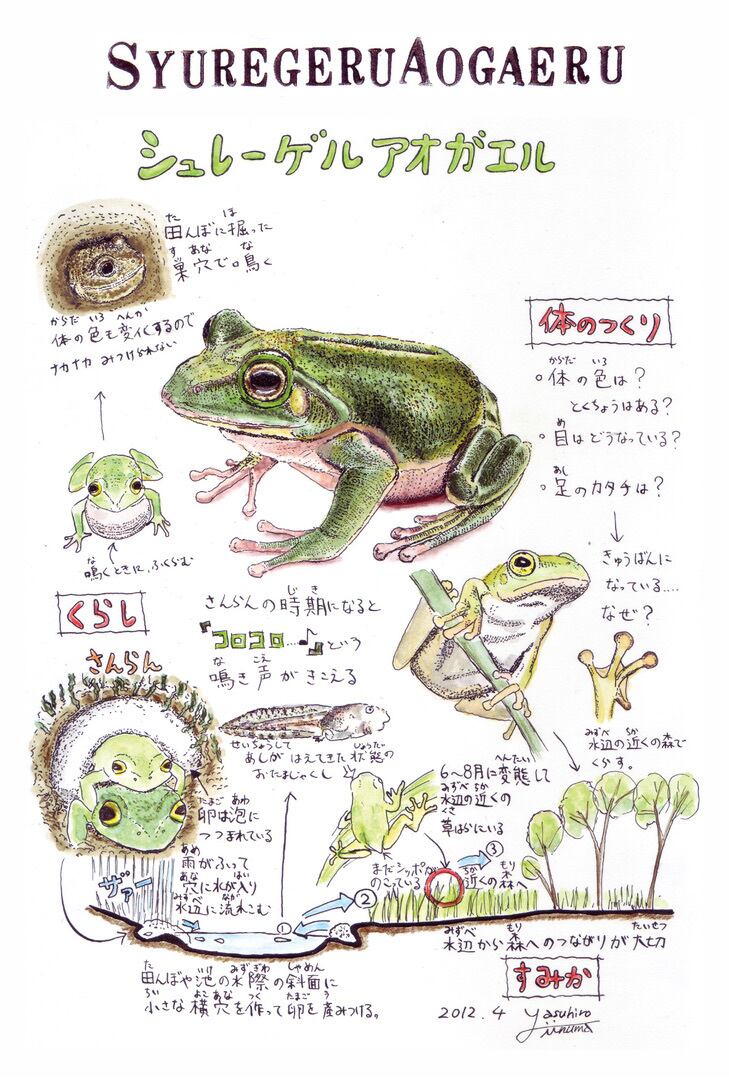 SYUREGERUAOGAERU
シュレーゲル アオガエル
田んぼに掘った
巣穴で鳴く
体の色も変化するので
ナカナカ みつけられない
鳴くときに、ふくらむ
体のつくり
体の色は?
とくちょうはある?
目はどうなっている?
足のカタチは?
きゅうばんに
なっている....
なぜ?
水辺の近くの森で
くらす。
くらし
さんらんの時期になると
コロコロ…♪という
鳴き声がきこえる
さんらん
卵は泡に
つつまれている
せいちょうして
あしが はえてきた 状態の
おたまじゃくし
6〜8月に変態して
水辺の近くの
草はらにいる
まだシッポが
のこっている
近くの森へ
雨がふって
穴に水が入り
水辺に流れこむ
ザァー
①
②
③
水辺から森へのつながりが大切
すみか
田んぼや池の水際の斜面に
小さな横穴を作って卵を産みつける。
2012.4 Yasuhiro Iinuma